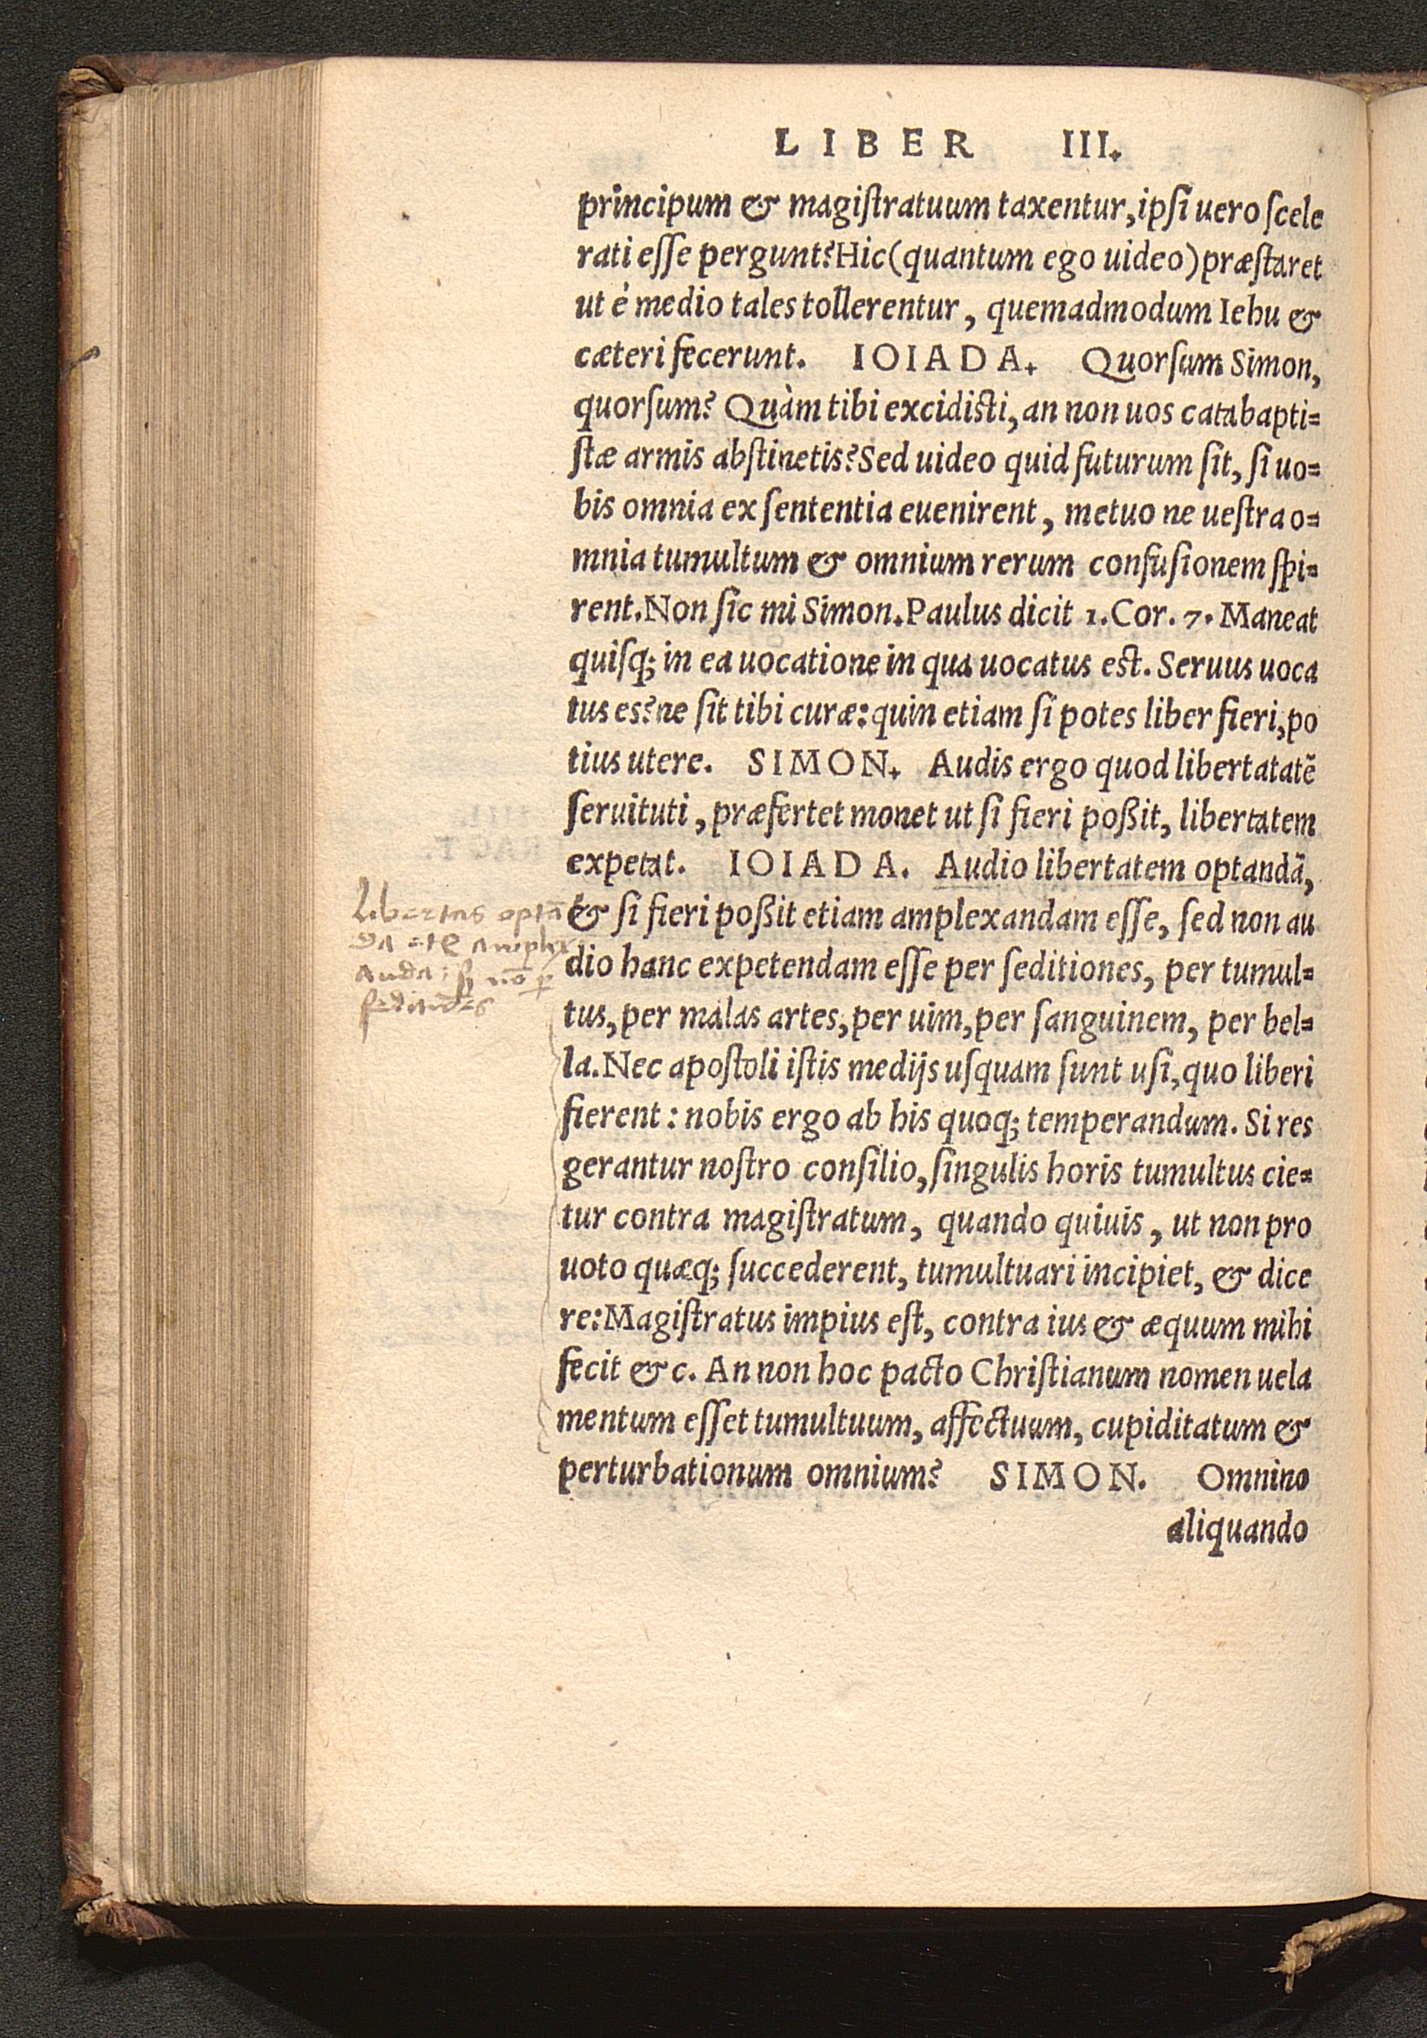 LIBER III.
principum & magiſtratuum taxentur, ipſi uero ſcele
rati eſſe pergunt? Hic (quantum ego uideo) præſtaret
ut è medio tales tollerentur, quemadmodum Iehu &
cæteri fecerunt. IOIADA. Quorſum Simon,
quorſum? Quàm tibi excidiſti, an non uos catabapti=
ſtæ armis abſtinetis? Sed uideo quid futurum ſit, ſi uo=
bis omnia ex ſententia euenirent, metuo ne ueſtra o=
mnia tumultum & omnium rerum confuſionem ſpi=
rent. Non ſic mi Simon. Paulus dicit 1. Cor. 7. Maneat
quiſq; in ea uocatione in qua uocatus eſt. Seruus uoca
tus es? ne ſit tibi curæ: quin etiam ſi potes liber fieri, po
tius utere. SIMON. Audis ergo quod libertatatē
ſeruituti, præfertet monet ut ſi fieri poßit, libertatem
expetat. IOIADA. Audio libertatem optandā,
& ſi fieri poßit etiam amplexandam eſſe, ſed non au
dio hanc expetendam eſſe per ſeditiones, per tumul=
tus, per malas artes, per uim, per ſanguinem, per bel=
la. Nec apoſtoli iſtis medijs uſquam ſunt uſi, quo liberi
fierent: nobis ergo ab his quoq; temperandum. Si res
gerantur noſtro conſilio, ſingulis horis tumultus cie=
tur contra magiſtratum, quando quiuis, ut non pro
uoto quæq; ſuccederent, tumultuari incipiet, & dice
re: Magiſtratus impius eſt, contra ius & æquum mihi
fecit &c. An non hoc pacto Chriſtianum nomen uela
mentum eſſet tumultuum, affectuum, cupiditatum &
perturbationum omnium? SIMON. Omnino
aliquando
Libertas optā
da
anda: nō
ſeditiōes